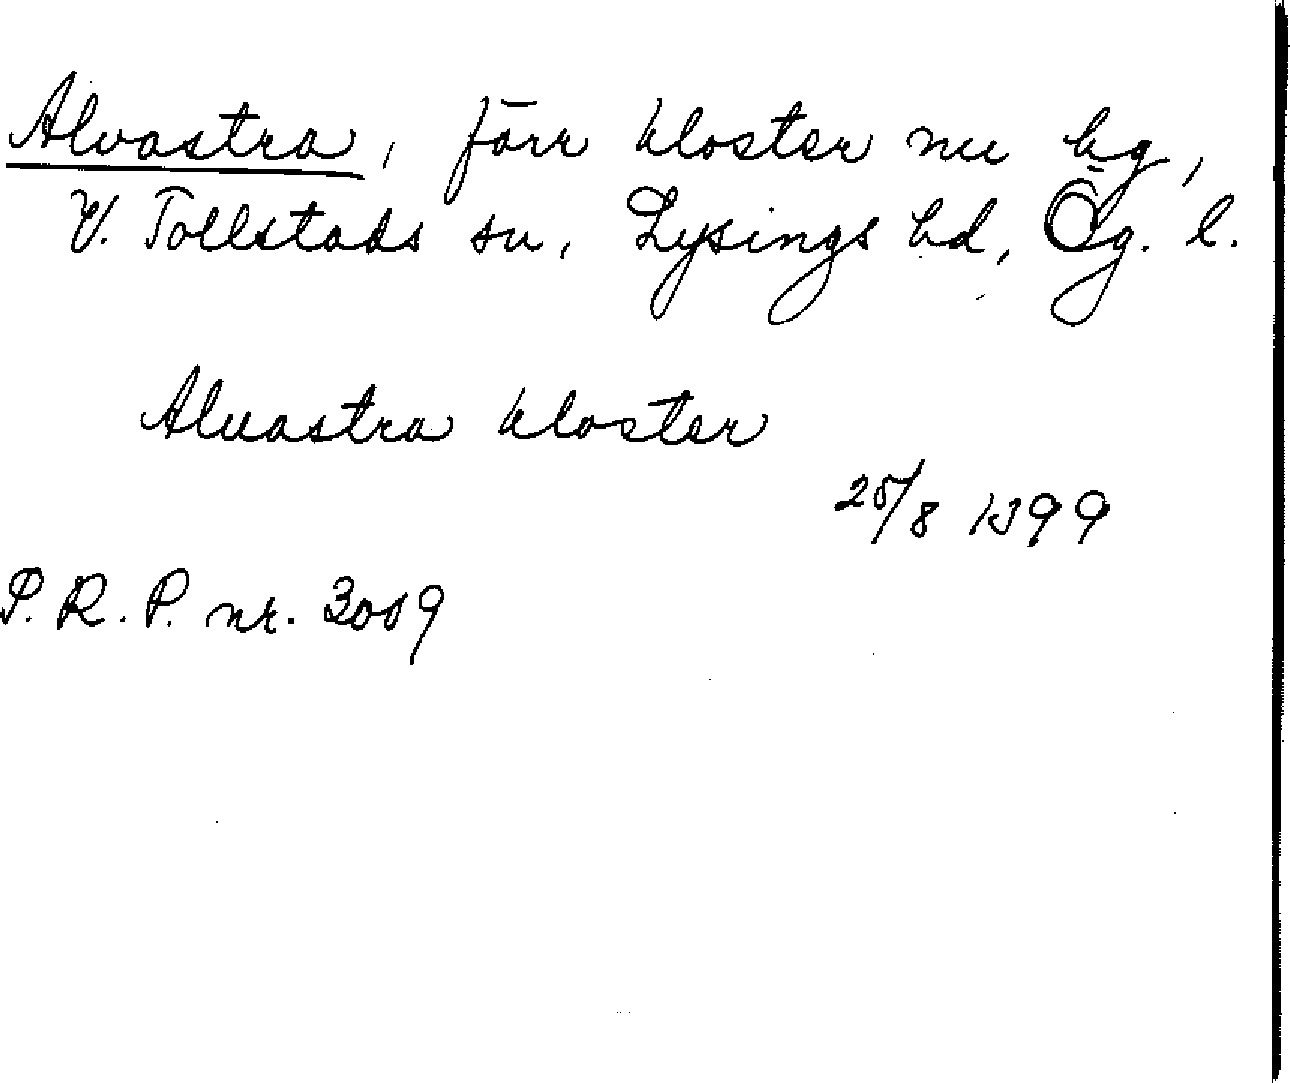 Alvastra, förr kloster nu hg,
V. Tollstads sn, Lysings hd, Ög. l.
Aluastra kloster
25/8 1399
P.R.P. nr. 3009